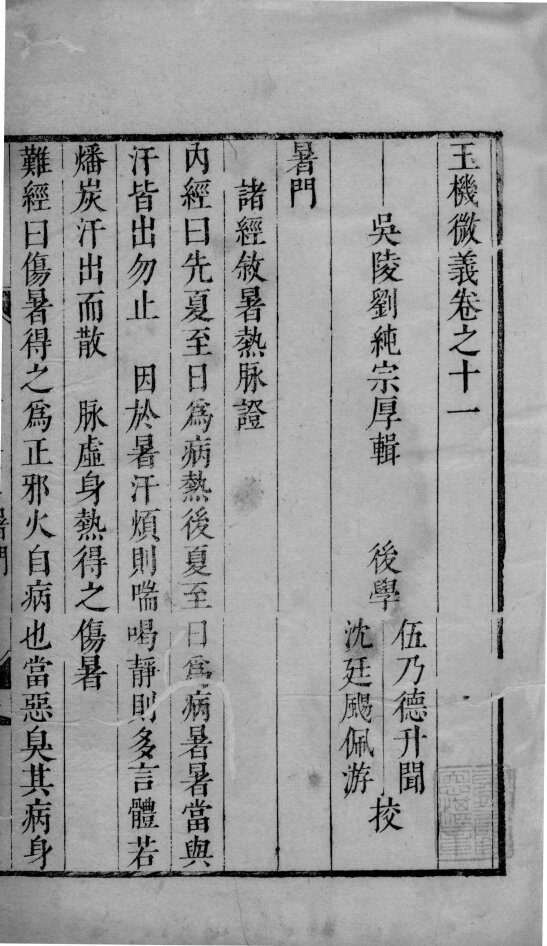 玉機微義卷之十一
吳陵劉純宗厚輯　後學
伍乃德升聞
沈廷颺佩游
挍
暑門
諸經敘暑熱脉證
內經曰先夏至日爲病熱後夏至日爲病暑暑當與
汗皆出勿止　因於暑汗煩則喘喝靜則多言體若
燔炭汗出而散　脉虛身熱得之傷暑
難經曰傷暑得之爲正邪火自病也當惡臭其病身
暑門